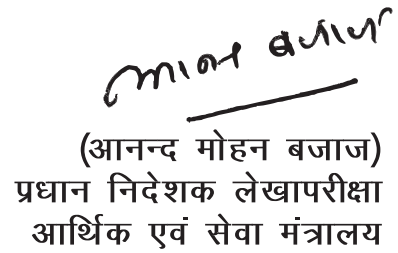 आनन्द बजाज
(आनन्द मोहन बजाज)
प्रधान निदेशक लेखापरीक्षा
आर्थिक एवं सेवा मंत्रालय